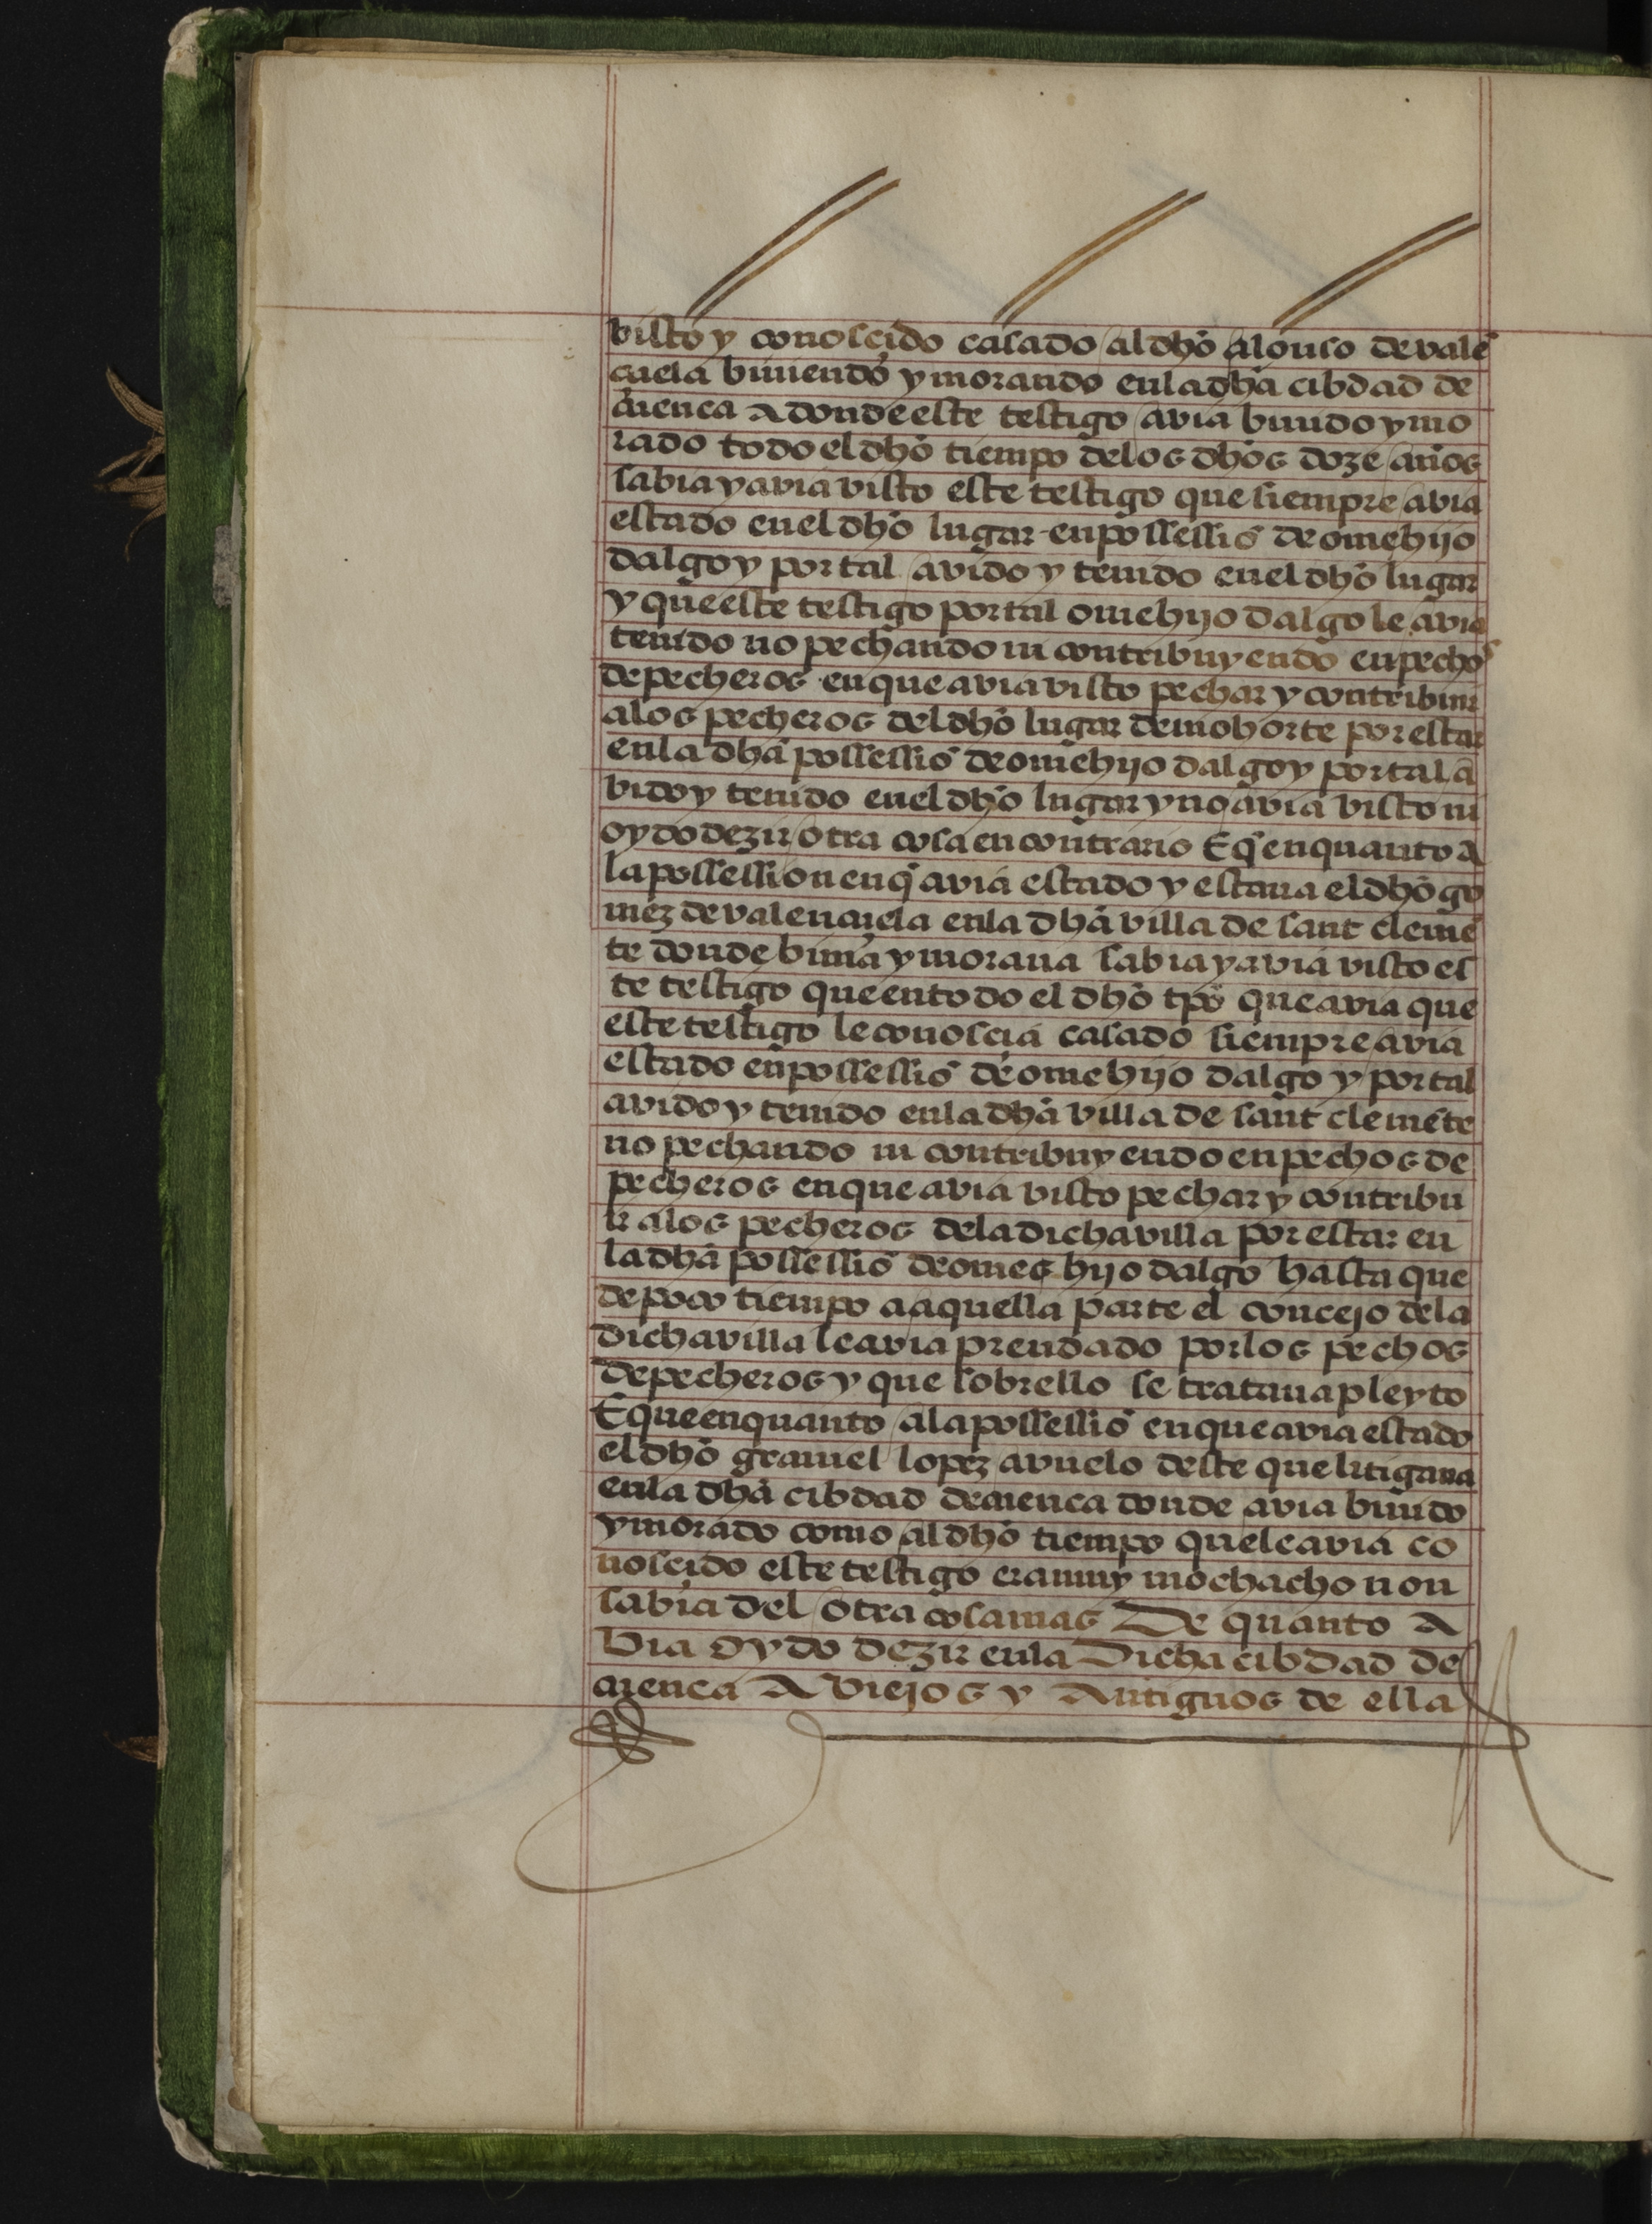 visto y conoscido casado al dho alonso de valē
çuela biuiendo y morando en la dha cibdad de
cuenca a donde este testigo avia biuido y mo
rado todo el dho tiempo de los dhos doze años
sabia y avia visto este testigo que siempre avia
estado en el dho lugar en possessiō de ome hijo
dalgo y por tal avido y tenido en el dho lugar
y que este testigo por tal ome hijo dalgo le avia
tenido no pechando ni contribuyendo en pechos
de pecheros en que avia visto pechar y contribuir
a los pecheros del dho lugar de mohorte por estar
en la dha possessiō de ome hijo dalgo y por tal a
vido y tenido en el dho lugar y no avia visto ni
oydo dezir otra cosa en contrario E q̄ en quanto a
la possession en q̄ avia estado y estaua el dho go
mez de valençuela en la dha villa de sant clemē
te donde biuia y moraua sabia y avia visto es
te testigo que en todo el dho tpo que avia que
este testigo le conoscia casado siempre avia
estado en possessiō de ome hijo dalgo y por tal
avido y tenido en la dha villa de sant clemēte
no pechando ni contribuyendo en pechos de
pecheros en que avia visto pechar y contribu
ir a los pecheros de la dicha villa por estar en
la dha possessiō de omes hijo dalgo hasta que
de poco tiempo a aquella parte el concejo de la
dicha villa le avia prendado por los pechos
de pecheros y que sobrello se trataua pleyto
E que en quanto a la possessiō en que avia estado
el dho grauiel lopez avuelo deste que litigaua
en la dha cibdad de cuenca donde avia biuido
y morado como al dho tiempo que le avia co
noscido este testigo era muy mochacho non
sabia del otra cosa mas De quanto A
via oydo dezir en la Dicha cibdad de
cuenca A viejos y Antiguos de ella